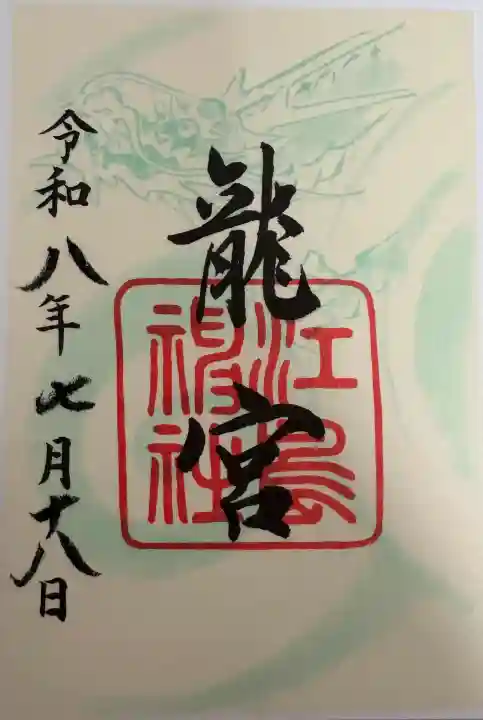 龍宮
江島神社
令和八年七月十八日